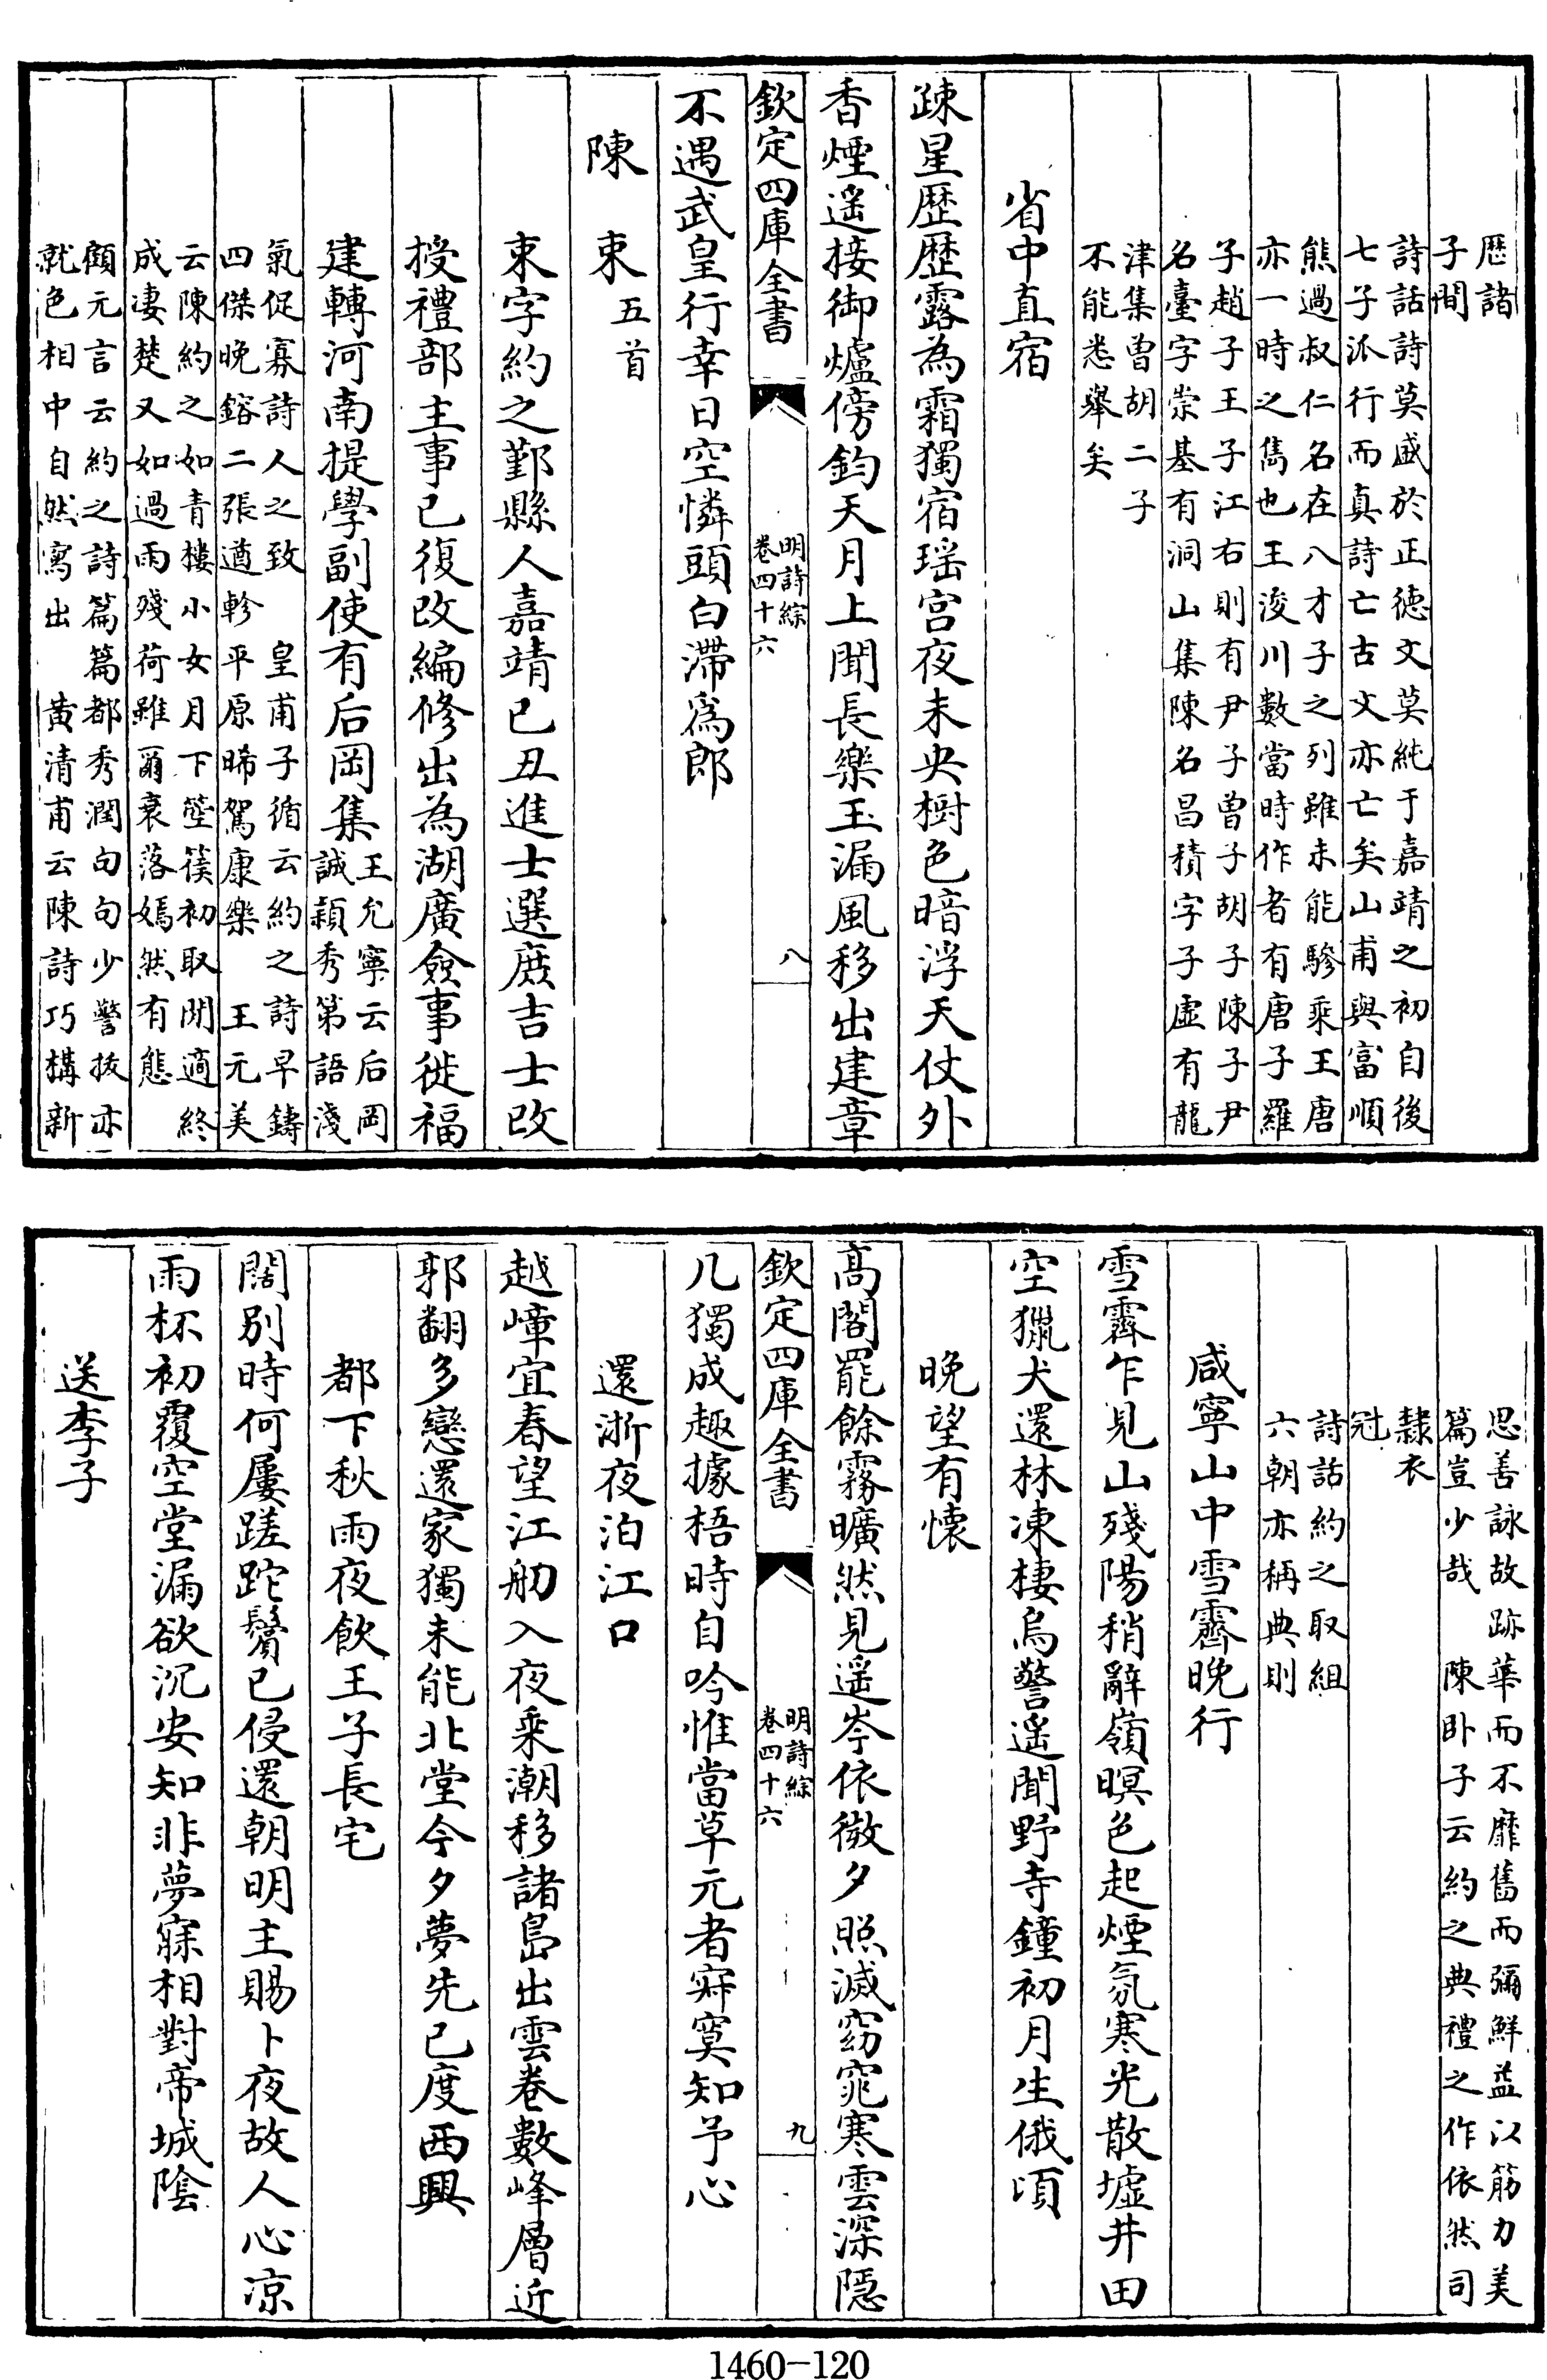 歴諸
子間
詩話詩莫盛於正徳文莫純于嘉靖之初自後
七子派行而真詩亡古文亦亡矣山甫與富順
熊過叔仁名在八才子之列雖未能驂乘王唐
亦一時之雋也王浚川數當時作者有唐子羅
子趙子王子江右則有尹子曾子胡子陳子尹
名臺字崇基有洞山集陳名昌積字子虚有龍
津集曾胡二子
不能悉舉矣
省中直宿
疎星歴歴露為霜獨宿瑶宫夜未央樹色暗浮天仗外
香煙遥接御爐傍鈞天月上聞長樂玉漏風移出建章
欽定四庫全書
明詩綜
卷四十六
八
不遇武皇行幸日空憐頭白滯為郎
陳束五首
束字約之鄞縣人嘉靖己丑進士選庶吉士改
授禮部主事已復改編修出為湖廣僉事徙福
建轉河南提學副使有后岡集
王允寧云后岡
誠穎秀第語淺
氣促寡詩人之致 皇甫子循云約之詩早鑄
四傑晚鎔二張遒軫平原晞駕康樂 王元美
云陳約之如青樓小女月下箜篌初取閒適終
成凄楚又如過雨殘荷雖爾衰落嫣然有態
顧元言云約之詩篇篇都秀潤句句少警拔亦
就色相中自然寫出 黄清甫云陳詩巧構新
思善詠故跡華而不靡舊而彌鮮益以筋力美
篇豈少哉 陳卧子云約之典禮之作依然司
隸衣
冠
詩話約之取組
六朝亦稱典則
咸寧山中雪霽晚行
雪霽乍見山殘陽稍辭嶺暝色起煙氛寒光散墟井田
空獵犬還林凍棲烏警遥聞野寺鐘初月生俄頃
晚望有懐
髙閣罷餘霧曠然見遥岑依微夕照滅窈窕寒雲深隱
欽定四庫全書
明詩綜
卷四十六
九
几獨成趣據梧時自吟惟當草元者寂寞知予心
還浙夜泊江口
越嶂宜春望江舠入夜乘潮移諸島出雲卷數峰層近
郭翻多戀還家獨未能北堂今夕夢先已度西興
都下秋雨夜飲王子長宅
闊别時何屢蹉跎鬢已侵還朝明主賜卜夜故人心凉
雨杯初覆空堂漏欲沉安知非夢寐相對帝城陰
送李子
1460-120